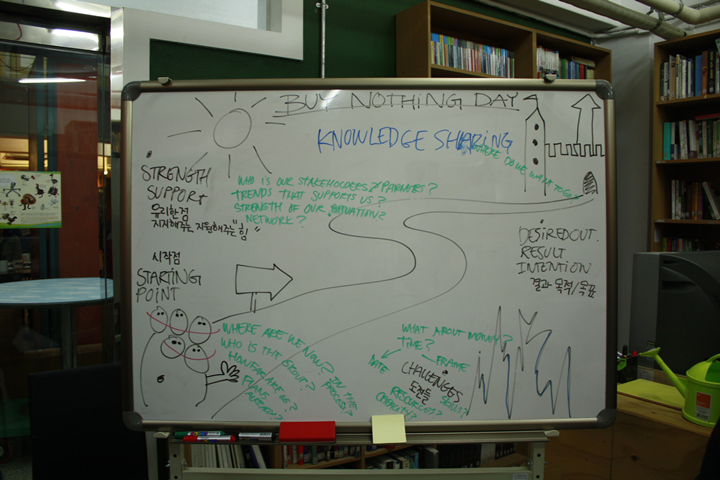 BUY NOTHING DAY
KNOWLEDGE SHARING
WHERE DO WE WANT TO GO?
STRENGTH
SUPPORT
우리한점
지지해주는 지원해주는 "힘"
WHO IS OUR STAKEHOLDERS/PARTNERS?
TRENDS THAT SUPPORTS US?
STRENGTH OF OUR SITUATION?
NETWORK?
DESIREDOUT.
RESULT
INTENTION
결과 목적/목표
시작점
STARTING
POINT
WHERE ARE WE NOW? IN THE
WHO IS THE GROUP? PROCESS?
HOW FAR ARE WE?
PLANS
ALREADY?
WHAT ABOUT MONEY?
TIME?
DATE
FRAME
CHALLENGES
도전들
SKILLS?
RESOURCES?
CAPACITY?